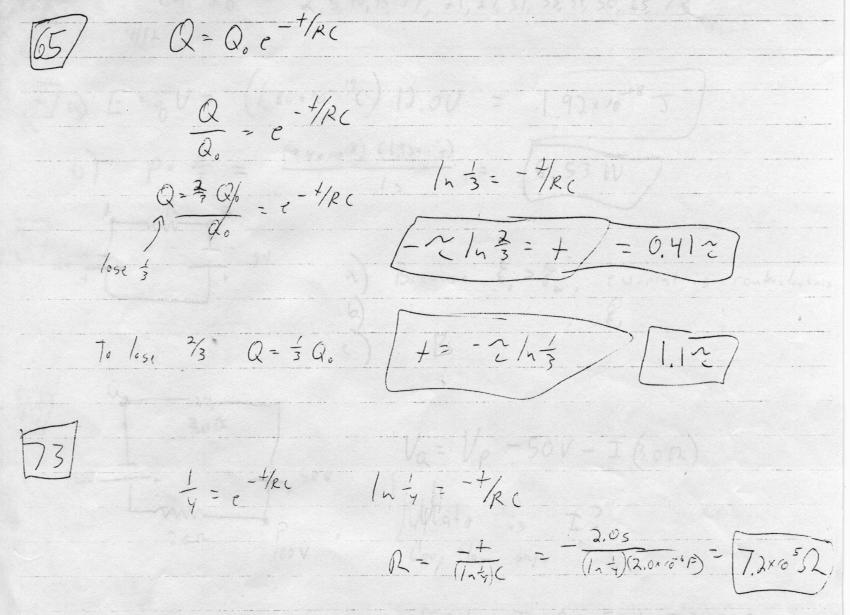 65 Q = Q₀ e^(-t/RC)
Q/Q₀ = e^(-t/RC)
ln 1/3 = -t/RC
Q = 2/3 Q₀ / Q₀ = e^(-t/RC)
lose 1/3
-τ ln 2/3 = t = 0.41 τ
To lose 2/3 Q = 1/3 Q₀ t = -τ ln 1/3 1.1 τ
73
1/4 = e^(-t/RC) ln 1/4 = -t/RC
R = -t/(ln 1/4)C = -2.0s/(ln 1/4)(2.0×10^-6 F) = 7.2×10^5 Ω